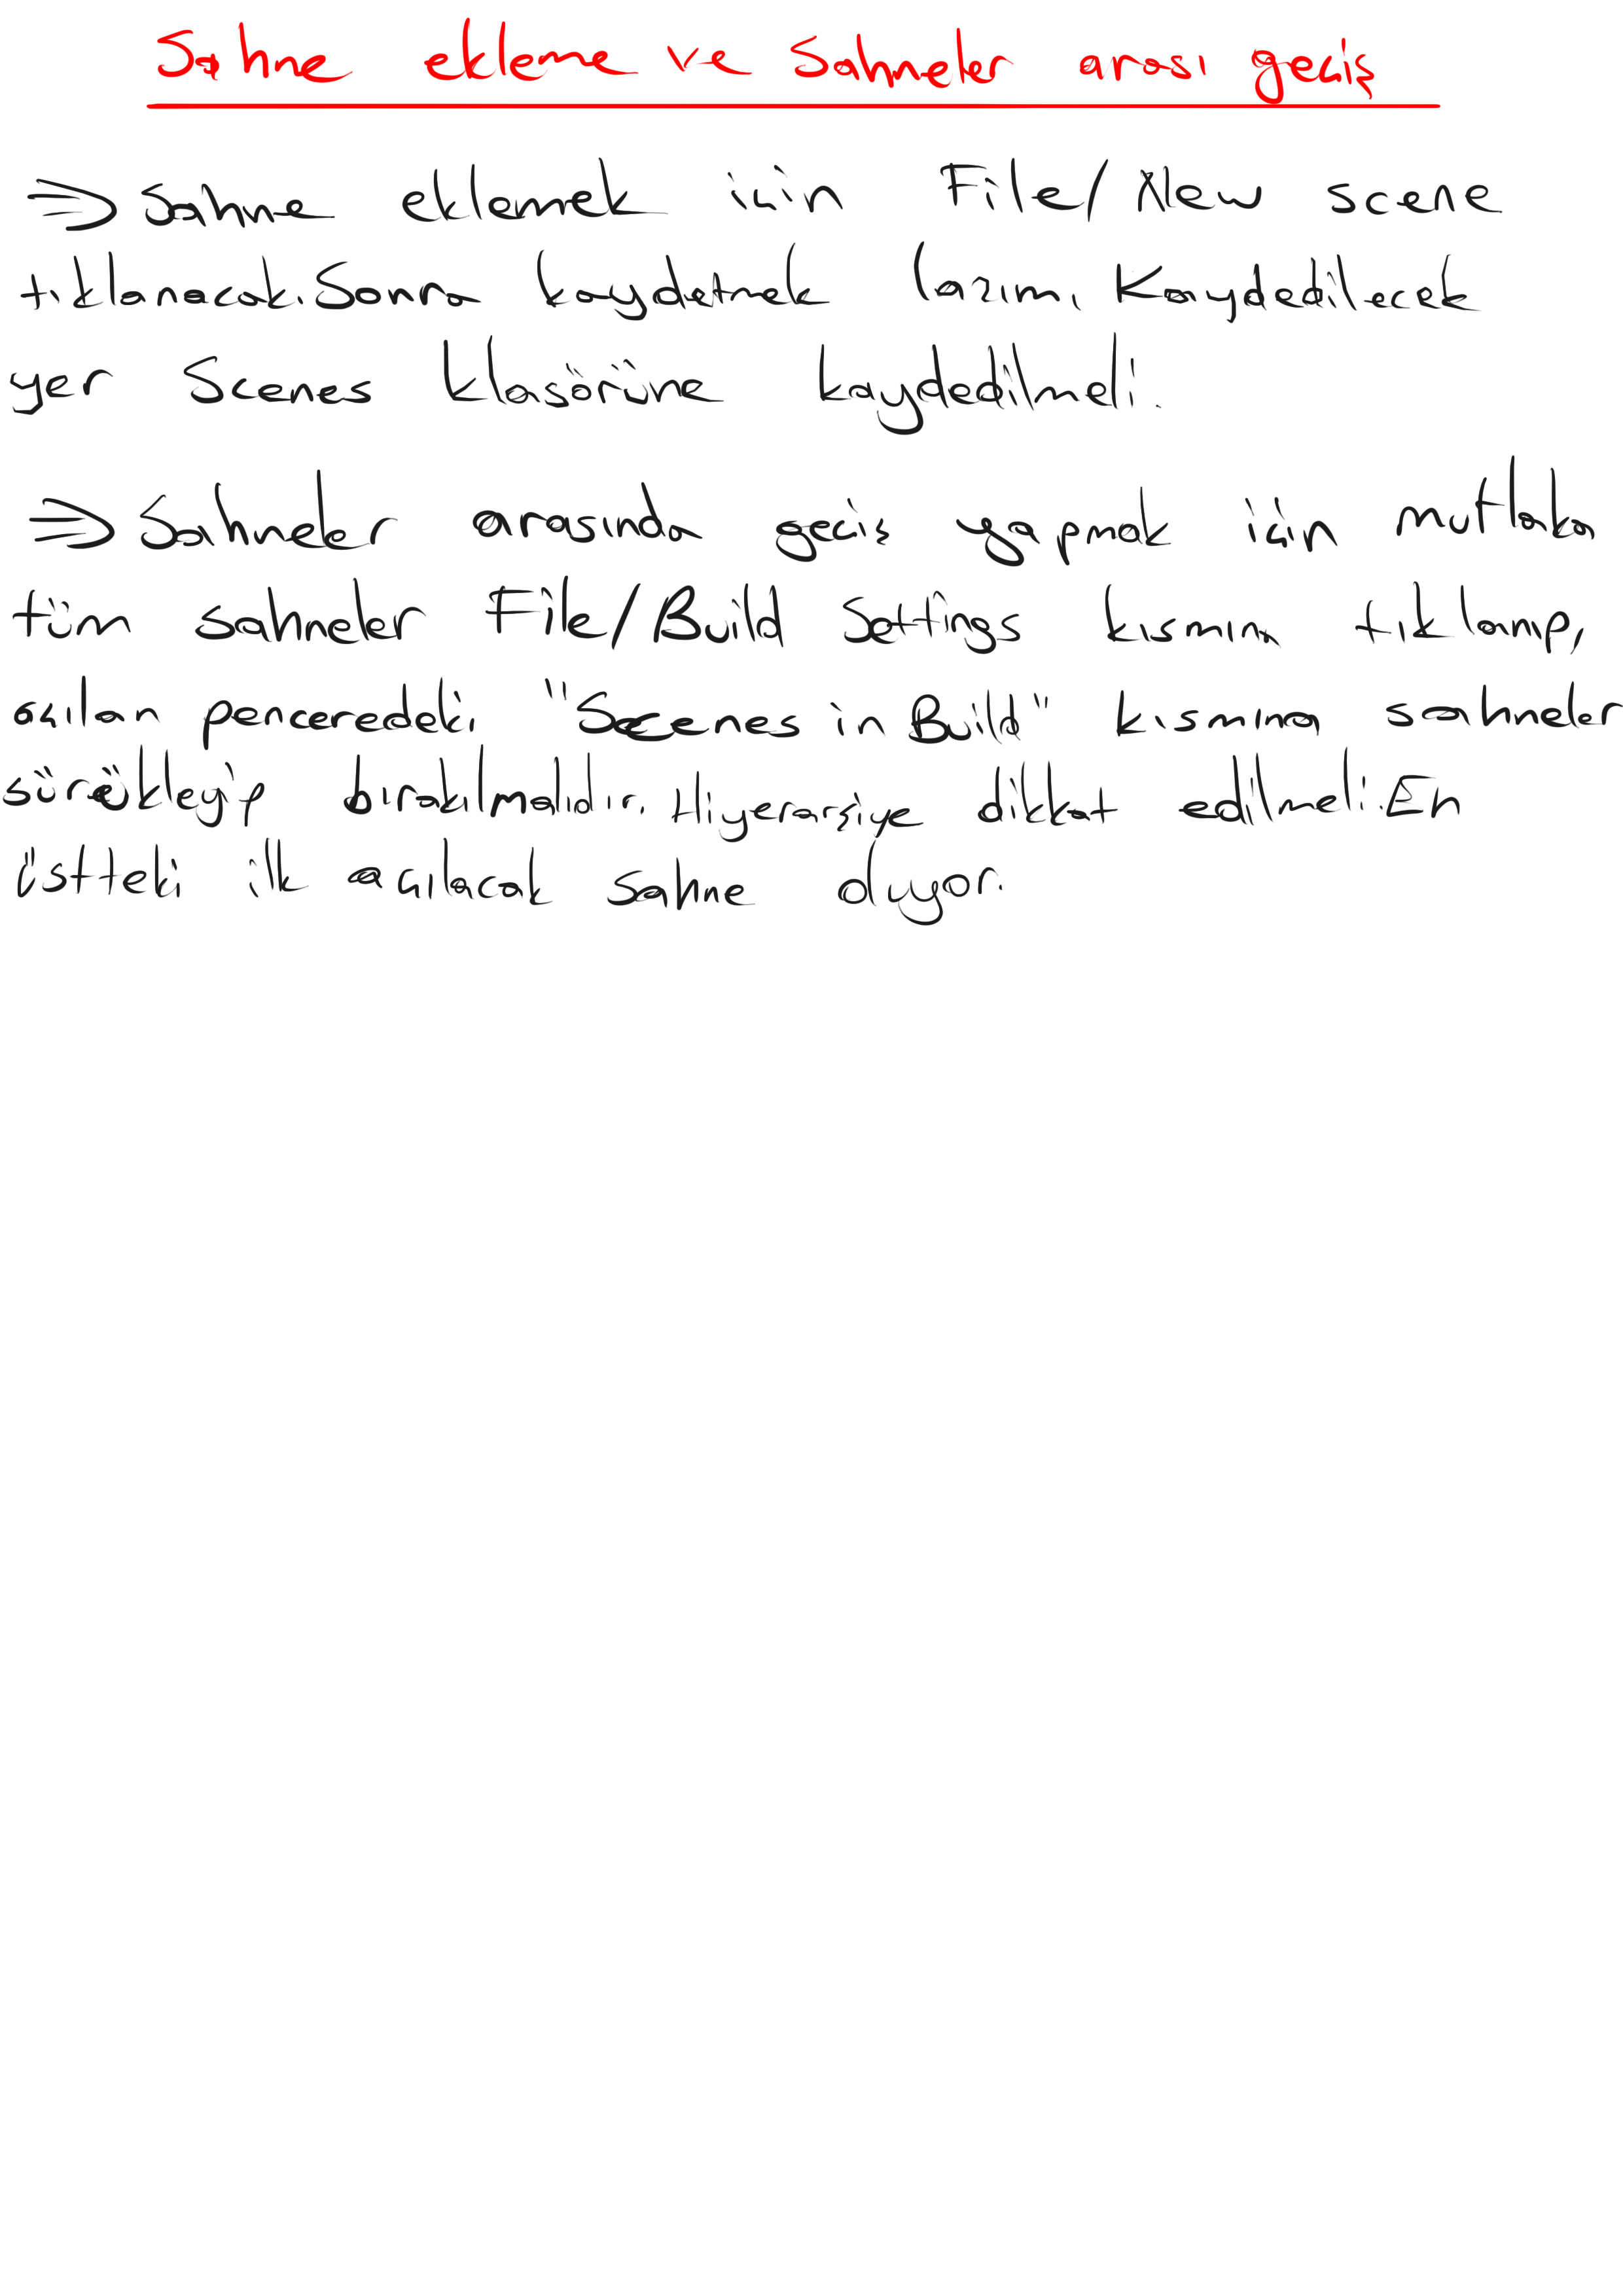 Sahne ekleme ve Sahneler arası geçiş
⇒ Sahne eklemek için File/New scene
tıklanacak. Sonra kaydetmek lazım. Kaydedilecek
yer Scenes klasörüne kaydedilmeli.
⇒ Sahneler arasında geçiş yapmak için mutlaka
tüm sahneler File/Build Settings kısmına tıklanıp,
açılan penceredeki "Scenes in Build" kısmına sahneler
sürükleyip bırakılmalıdır. Hiyerarşiye dikkat edilmeli. En
üstteki ilk açılacak sahne oluyor.